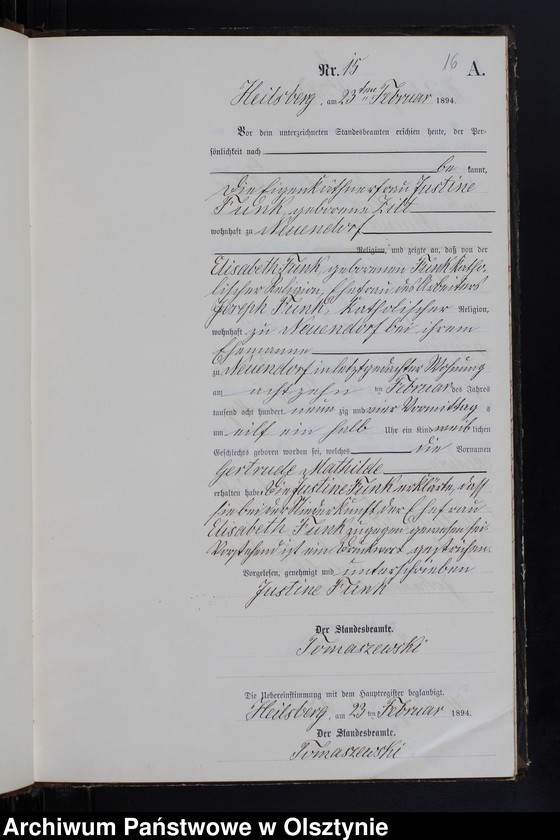 16
Nr. 15 A.
Heilsberg, am 23ten Februar 1894.
Vor dem unterzeichneten Standesbeamten erschien heute, der Per-
sönlichkeit nach
be kannt,
die Eigenkäthnerfrau Justine
Funk, geborene Zitt
wohnhaft zu Neuendorf
Religion, und zeigte an, daß von der
Elisabeth Funk, geborenen Funk katho-
lischer Religion, Ehefrau des Arbeiters
Joseph Funk, katholischer Religion,
wohnhaft zu Neuendorf bei ihrem
Ehemanne
zu Neuendorf in letztgedachter Wohnung
am achtzehn ten Februar des Jahres
tausend acht hundert neun zig und vier Vormittag s
um eilf ein halb Uhr ein Kind weib lichen
Geschlechts geboren worden sei, welches die Vornamen
Gertrude Mathilde
erhalten habe. Die Justine Funk erklärte, daß
sie bei der Niederkunft der Ehefrau
Elisabeth Funk zugegen gewesen sei
Vorstehend ist ein Druckwort gestrichen.
Vorgelesen, genehmigt und unterschrieben
Justine Funk
Der Standesbeamte.
Tomaszewski
Die Uebereinstimmung mit dem Hauptregister beglaubigt.
Heilsberg, am 23 ten Februar 1894.
Der Standesbeamte.
Tomaszewski
Archiwum Państwowe w Olsztynie